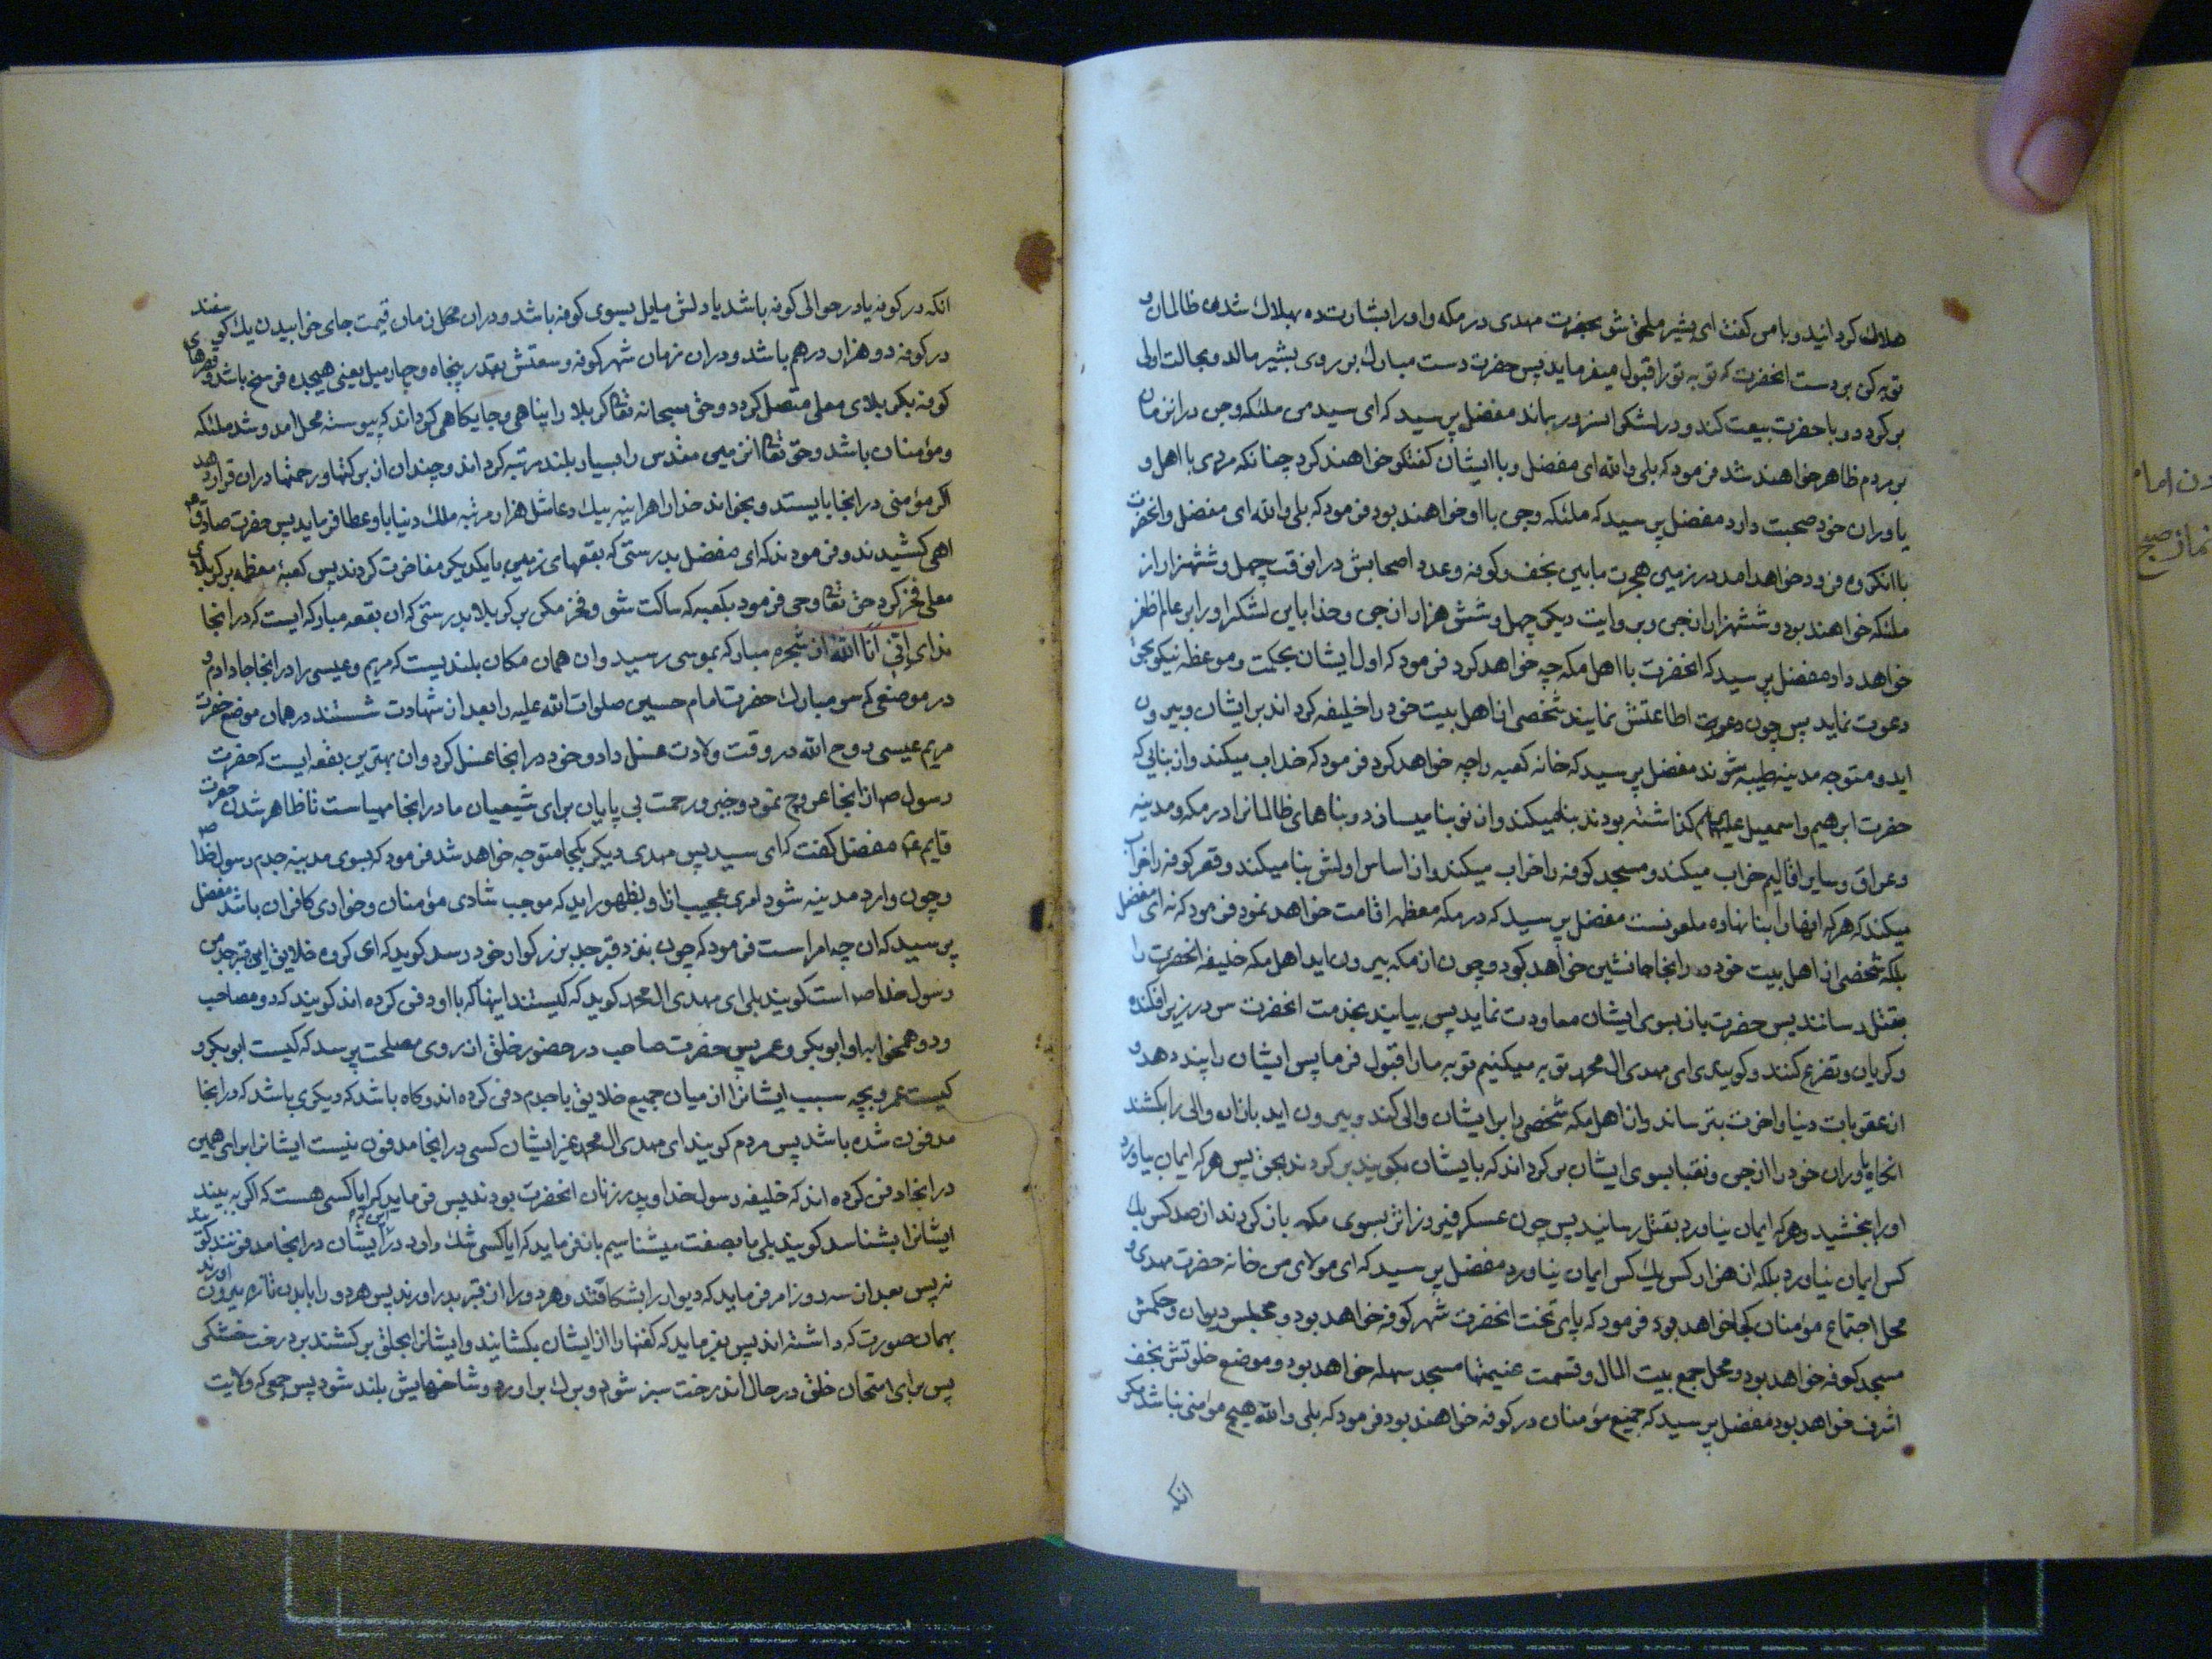 هلاك كردانيد و بامن كفت اى بشير ملحق شو بحضرت مهدى در مكه و او را بشارت ده بهلاك شدن ظالمان و
توبه كن بر دست انحضرت كه توبه تو را قبول ميفرمايد پس حضرت دست مبارك بر روى بشير مالد و بحالت اولى
بر كردد و با حضرت بيعت كند و در لشكر انسرور بماند مفضل پرسيد كه اى سيد من ملئكه و جن در انزمان
بر مردم ظاهر خواهند شد فرمود كه بلى والله اى مفضل و با ايشان كفتكو خواهند كرد چنانكه مردى با اهل و
ياوران خود صحبت دارد مفضل پرسيد كه ملئكه و جن با او خواهند بود فرمود كه بلى والله اى مفضل و انحضرت
با انكروه فرود خواهد امد در زمين هجرت مابين نجف و كوفه و عدد اصحابش در انوقت چهل و ششهزار از
ملئكه خواهند بود و ششهزار از جن و بروايت ديكر چهل و شش هزار از جن و خدا باين لشكر او را بر عالم ظفر
خواهد داد مفضل پرسيد كه انحضرت با اهل مكه چه خواهد كرد فرمود كه اول ايشان بحكمت و موعظه نيكو بحق
دعوت نمايد پس چون دعوت اطاعتش نمايند شخصى از اهل بيت خود را خليفه كرداند بر ايشان و بيرون
ايد و متوجه مدينه طيبه شوند مفضل پرسيد كه خانه كعبه را چه خواهد كرد فرمود كه خراب ميكند و از بنائي كه
حضرت ابرهيم و اسمعيل عليهما كذاشته بودند بنا ميكند و از نو بنا ميسازد و بناهاى ظالمانرا در مكه و مدينه
و عراق و ساير اقاليم خراب ميكند و مسجد كوفه را خراب ميكند و از اساس اولش بنا ميكند و قصر كوفه را خراب
ميكند كه هر كه انها را بنا نهاده ملعونست مفضل پرسيد كه در مكه معظمه اقامت خواهد نمود فرمود كه نه اى مفضل
بلكه شخصى از اهل بيت خود در انجا جانشين خواهد كرد و چون از مكه بيرون ايد اهل مكه خليفه انحضرت را
بقتل رسانند پس حضرت باز بسوى ايشان معاودت نمايد پس بيايند بخدمت انحضرت سر در زير افكنده
و كريان و تضرع كنند و كويند اى مهدى ال محمد توبه ميكنيم توبه ما را قبول فرما پس ايشان را پند دهد و
از عقوبات دنيا و اخرت بترساند و از اهل مكه شخصى را بر ايشان والى كند و بيرون ايد باز ان والى را بكشند
انكاه ياوران خود را از جن و نقبا بسوى ايشان بر كرداند كه با ايشان بكويند بر كردند بحق پس هر كه ايمان بياورد
او را ببخشيد و هر كه ايمان نياورد بقتل رسانيد پس چون عسكر فيروز اثر بسوى مكه باز كردند از صد كس يك
كس ايمان نياورد بلكه از هزار كس يك كس ايمان نياورد مفضل پرسيد كه اى مولاى من خانه حضرت مهدى و
محل اجتماع مؤمنان كجا خواهد بود فرمود كه پاى تخت انحضرت شهر كوفه خواهد بود و مجلس ديوان و حكمش
مسجد كوفه خواهد بود و محل جمع بيت المال و قسمت غنيمتها مسجد سهله خواهد بود و موضع خلوتش نجف
اشرف خواهد بود مفضل پرسيد كه جميع مؤمنان در كوفه خواهند بود فرمود كه بلى والله هيچ مؤمنى نباشد مكر
انكه
انكه در كوفه يا در حوالى كوفه باشد يا دلش مايل بسوى كوفه باشد و در ان زمان قيمت جاى خوابيدن يك كوسفند
در كوفه دو هزار درهم باشد و در ان زمان شهر كوفه وسعتش بقدر پنجاه و چهار ميل يعنى هيجده فرسخ باشد و قصرهاى
كوفه بكربلاى معلى متصل كردد و حق سبحانه تعالى كربلا را پناهى و جايكاهى كرداند كه پيوسته محل امد و شد ملئكه
و مؤمنان باشد و حق تعالى انزمين مقدس را بسيار بلند مرتبه كرداند و چندان از بركتها و رحمتها در ان قرار دهد
اكر مؤمنى در انجا بايستد و بخواند خدا را هراينه بيك دعا مثل هزار مرتبه ملك دنيا باو عطا فرمايد پس حضرت صادق
اهى كشيدند و فرمودند كه اى مفضل بدرستى كه بقعهاى زمين با يكديكر مفاخرت كردند پس كعبه معظمه بر كربلاى
معلى فخر كرد حق تعالى وحى فرمود بكعبه كه ساكت شو و فخر مكن بر كربلا بدرستى كه ان بقعه مباركه ايست كه در انجا
نداى إنّي أنا الله از شجره مباركه بموسى رسيد و ان همان مكان بلنديست كه مريم و عيسى را در انجا جا دادم و
در موضعى كه سر مبارك حضرت امام حسين صلوات الله عليه را بعد از شهادت شستند در همان موضع حضرت
مريم عيسى روح الله در وقت ولادت غسل داد و خود در انجا غسل كرد و ان بهترين بقعه ايست كه حضرت
رسول ص از انجا عروج نمود و خير و رحمت بى پايان براى شيعيان ما در انجا مهياست تا ظاهر شدن حضرت
قايم ع مفضل كفت كه اى سيد پس مهدى ديكر بكجا متوجه خواهد شد فرمود كه بسوى مدينه جدم رسول خدا ص
و چون وارد مدينه شود امرى عجيب از او بظهور ايد كه موجب شادى مؤمنان و خوارى كافران باشد مفضل
پرسيد كه ان چه امر است فرمود كه چون بنزد قبر جد بزركوار خود رسد كويد كه اى كروه خلايق اين قبر جد من
رسول خدا ص است كويند بلى اى مهدى ال محمد كويد كه كيستند اينها كه با او دفن كرده اند كويند كه دو مصاحب
و دو همخوابه او ابو بكر و عمر پس حضرت صاحب در حضور خلق از روى مصلحت پرسد كه كيست ابو بكر و
كيست عمر و بچه سبب ايشانرا از ميان جميع خلايق با جدم دفن كرده اند و كاه باشد كه ديكري باشد كه در انجا
مدفون شده باشد پس مردم كويند اى مهدى ال محمد غير ايشان كسى در انجا مدفون نيست ايشانرا براى همين
در انجا دفن كرده اند كه خليفه رسول خدا و پدر زنان انحضرت بودند پس فرمايد كه ايا كسى هست كه اكر به بيند
ايشانرا بشناسد كويند بلى ما بصفت ميشناسيم باز فرمايد كه ايا كسى شك دارد در اين كه ايشان در انجا مدفونند كويند
نه پس بعد از سه روز امر فرمايد كه ديوار را بشكافند و هر دو را از قبر بدر اورند پس هر دو را با بدن تازه بيرون اورند
بهمان صورت كه داشته اند پس بفرمايد كه كفنها را از ايشان بكشايند و ايشانرا بحلق بر كشند بر درخت خشكى
پس براى امتحان خلق در حال اندرخت سبز شود و برك بر اورد و شاخهايش بلند شود پس جمعى كه ولايت
دن امام
نماز صبح